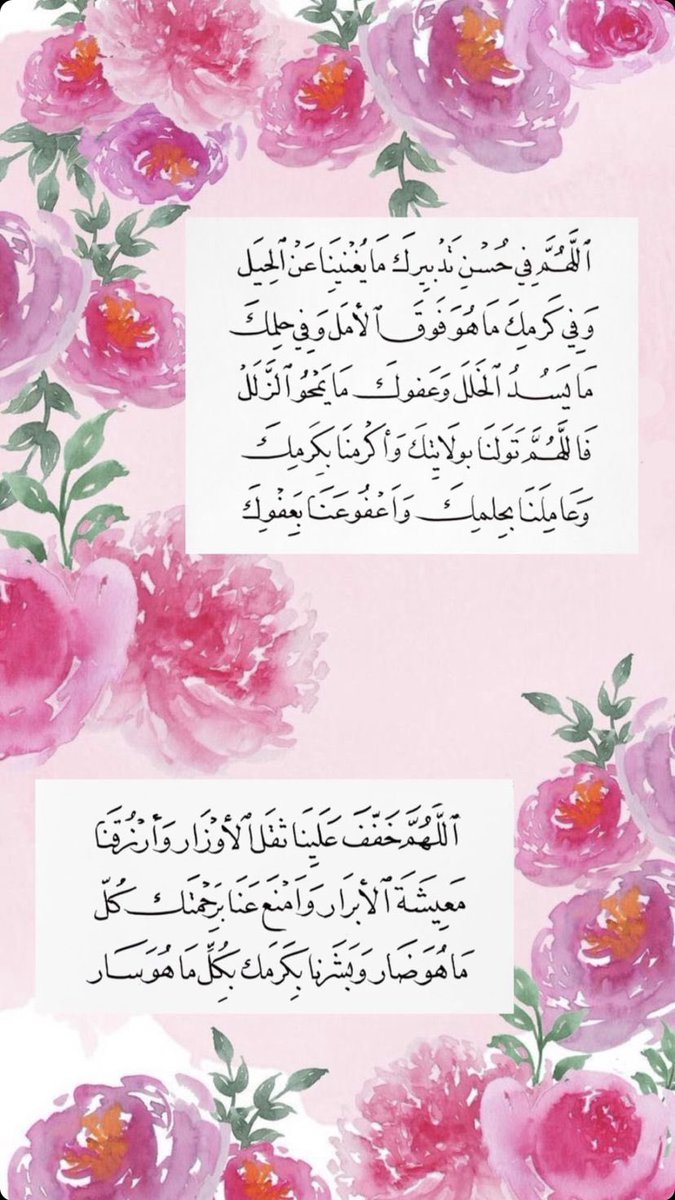 ٱللَّهُمَّ فِي حُسْنِ تَدْبِيرِكَ مَا يُغْنِينَا عَنْ ٱلحِيَل
وَفِي كَرَمِكَ مَا هُوَ فَوقَ ٱلأَمَل وَفِي حِلمِكَ
مَا يَسُدُ ٱلخَلَلَ وَعَفوكَ مَا يَمْحُو ٱلزَّلَلْ
فَاللَّهُمَّ تَوَلَنَا بِولَايِتكَ وَأَكْرمْنَا بِكَرمِكَ
وَعَامِلَنَا بحِلمِكَ وَاَعْفُو عَنَا بِعَفْوِكَ
ٱللَّهُمَّ خَفّفَ عَلَينَا ثقَلَ ٱلأوْزَار وَأرْزُقنَا
مَعِيشَةَ ٱلأبرَار وَاَمْنَع عَنَا بَرَحْمَتَك كُلّ
مَا هُوَ ضَار وَبَشَرنا بكَرَمك بِكُلِّ مَا هُوَ سَار